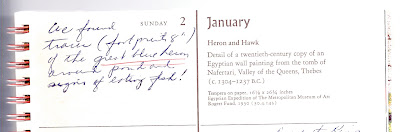 SUNDAY 2
We found
traces (footprint 8")
of the great blue heron
around pond and
signs of eating fish!
January
Heron and Hawk
Detail of a twentieth-century copy of an
Egyptian wall painting from the tomb of
Nefertari, Valley of the Queens, Thebes
(c. 1304–1237 B.C.)
Tempera on paper,
Egyptian Expedition of The Metropolitan Museum of Art
Rogers Fund, 1930 (30.4.